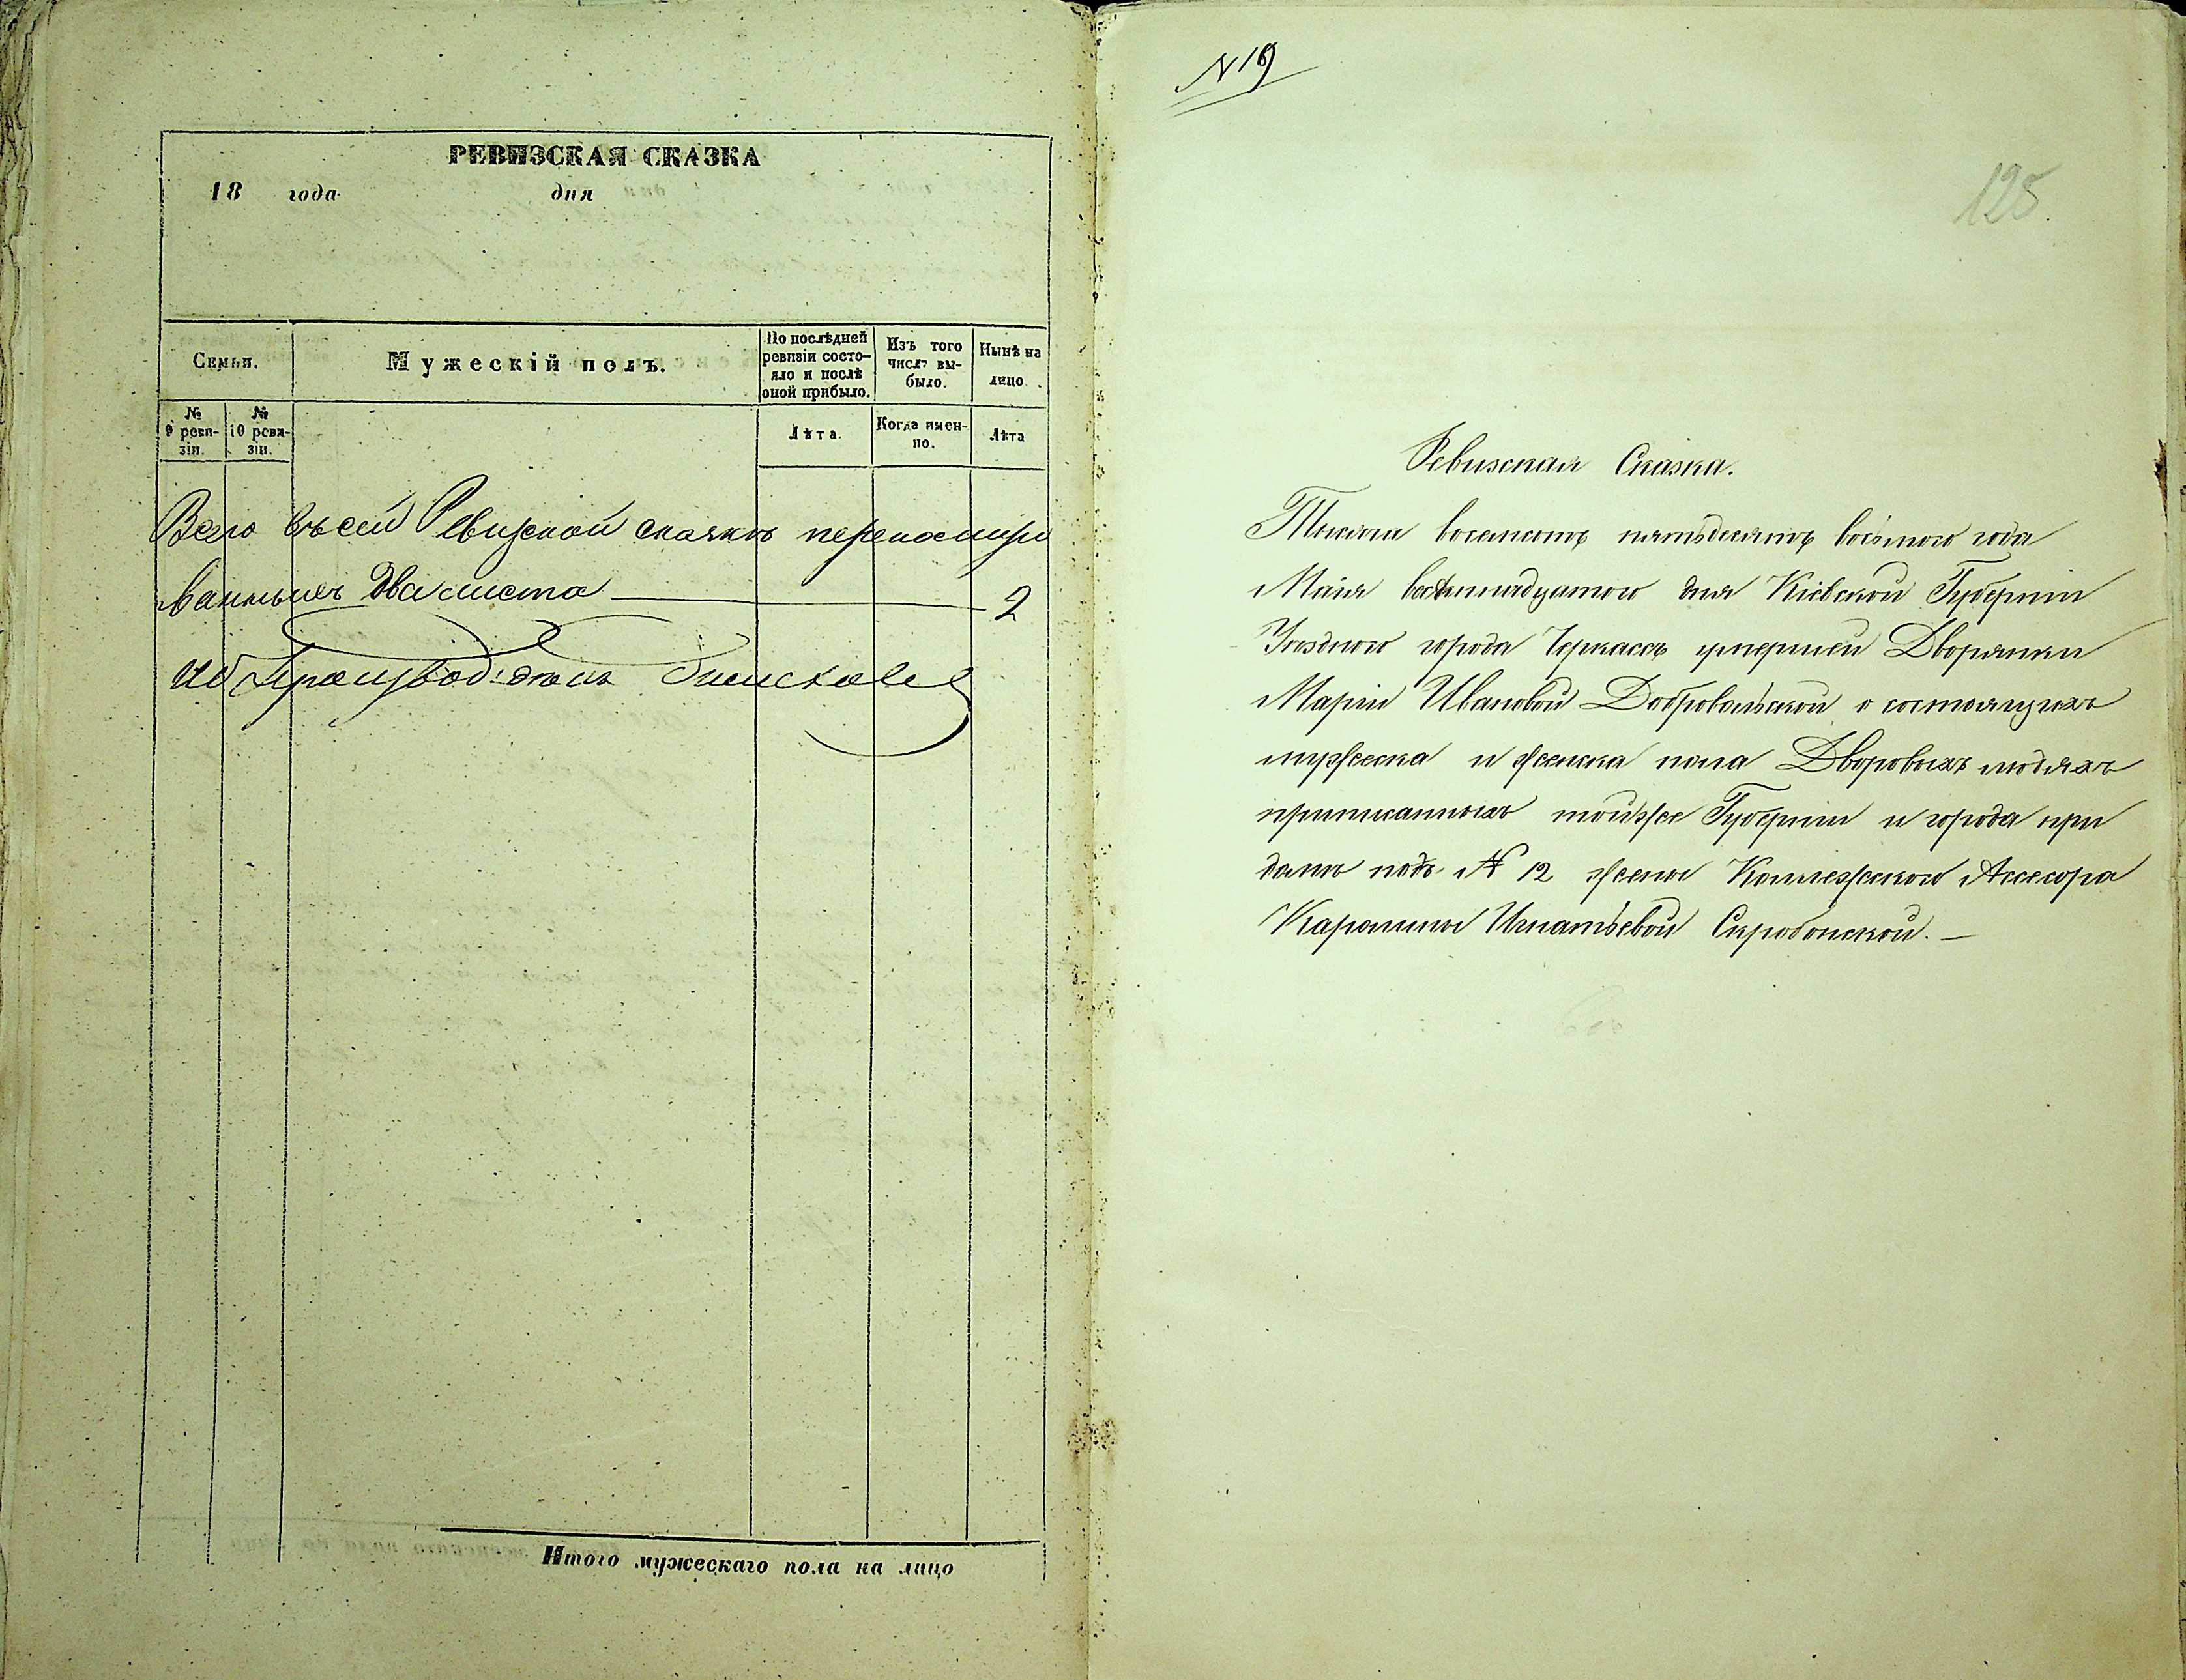 РЕВИЗСКАЯ СКАЗКА
18 года дня
Семьи.
Мужескій полъ.
По послѣдней ревизіи состо-
яло и послѣ
оной прибыло.
Изъ того
числа вы-
было.
Нынѣ на
лицо.
№
9 реви-
зіи.
№
10 реви-
зіи.
Лѣта.
Когда имен-
но.
Лѣта
Всего въ сей Ревизской сказкѣ переномиро
ванныхъ два листа 2
N 19
125.
Ревизская Сказка.
Тысяча восемсотъ пятьдесятъ восьмого года
Маія восемнадцатого дня Кіевской Губерніи
Уѣздного города Черкассъ умершей Дворянки
Маріи Ивановой Добровольской о состоящихъ
мужеска и женска пола Дворовыхъ людяхъ
приписанныхъ тойже Губерніи и города при
домѣ подъ N 12 жены Коллежского Ассесора
Каролины Игнатьевой
Итого мужескаго пола на лицо